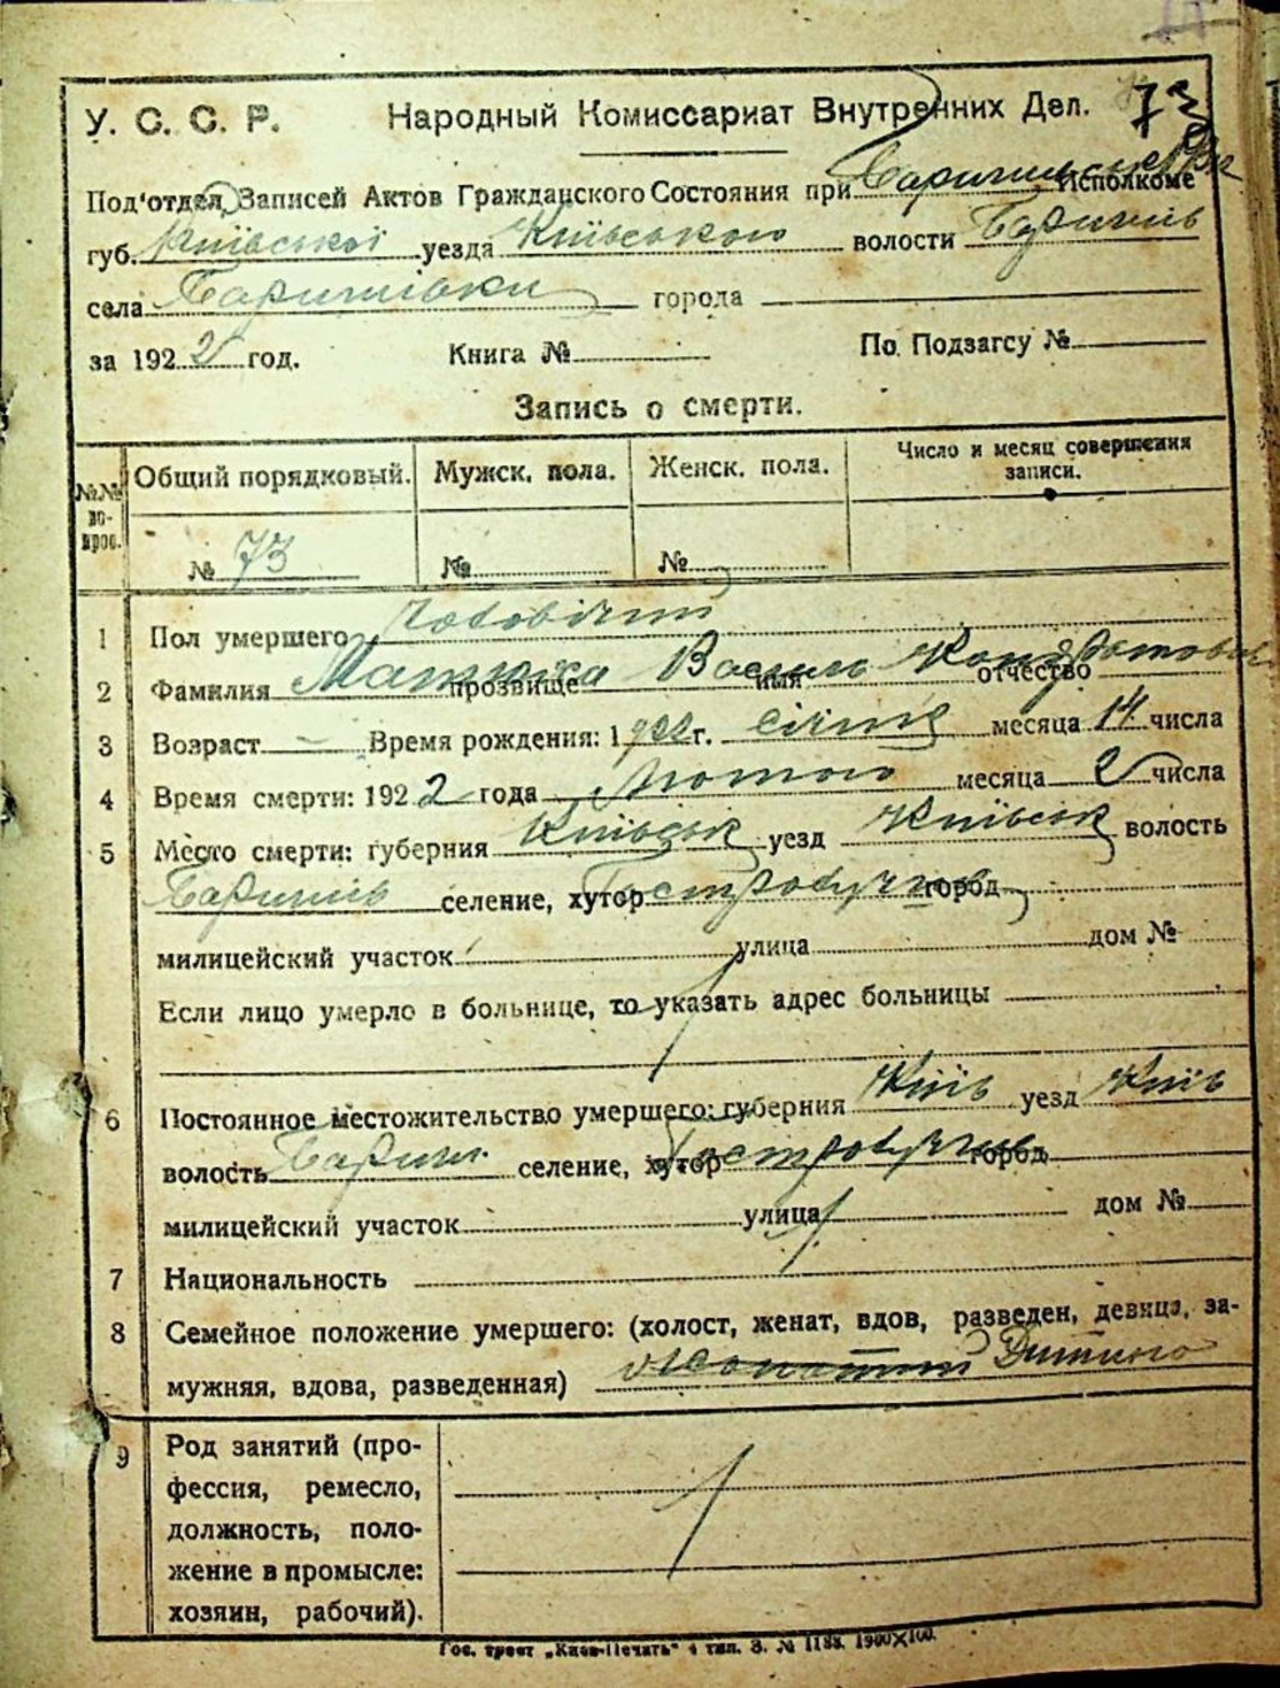 У. С. С. Р. Народный Комиссариат Внутренних Дел. 73
Под'отдел Записей Актов Гражданского Состояния при Исполкоме
губ. Київської уезда Київського волости Баришів
села Баришівки города
за 1922 год. Книга № По Подзагсу №
Запись о смерти.
№№ во-прос. Общий порядковый. Мужск. пола. Женск. пола. Число и месяц совершения записи.
№ 73 № №
1 Пол умершего чоловічий
2 Фамилия прозвище Василь имя Кондратович отчество
3 Возраст — Время рождения: 1922 г. січня месяца 14 числа
4 Время смерти: 1922 года Лютого месяца 2 числа
5 Место смерти: губерния Київськ уезд Київськ волость
Баришів селение, хутор город
милицейский участок улица дом №
Если лицо умерло в больнице, то указать адрес больницы
6 Постоянное местожительство умершего: губерния Київ уезд Київ
волость Бариш. селение, хутор город
милицейский участок улица дом №
7 Национальность
8 Семейное положение умершего: (холост, женат, вдов, разведен, девица, за-
мужняя, вдова, разведенная) Дитина
9 Род занятий (про-
фессия, ремесло,
должность, поло-
жение в промысле:
хозяин, рабочий).
Гос. трест „Киев-Печать" 4 тип. З. № 1188. 1900×100.